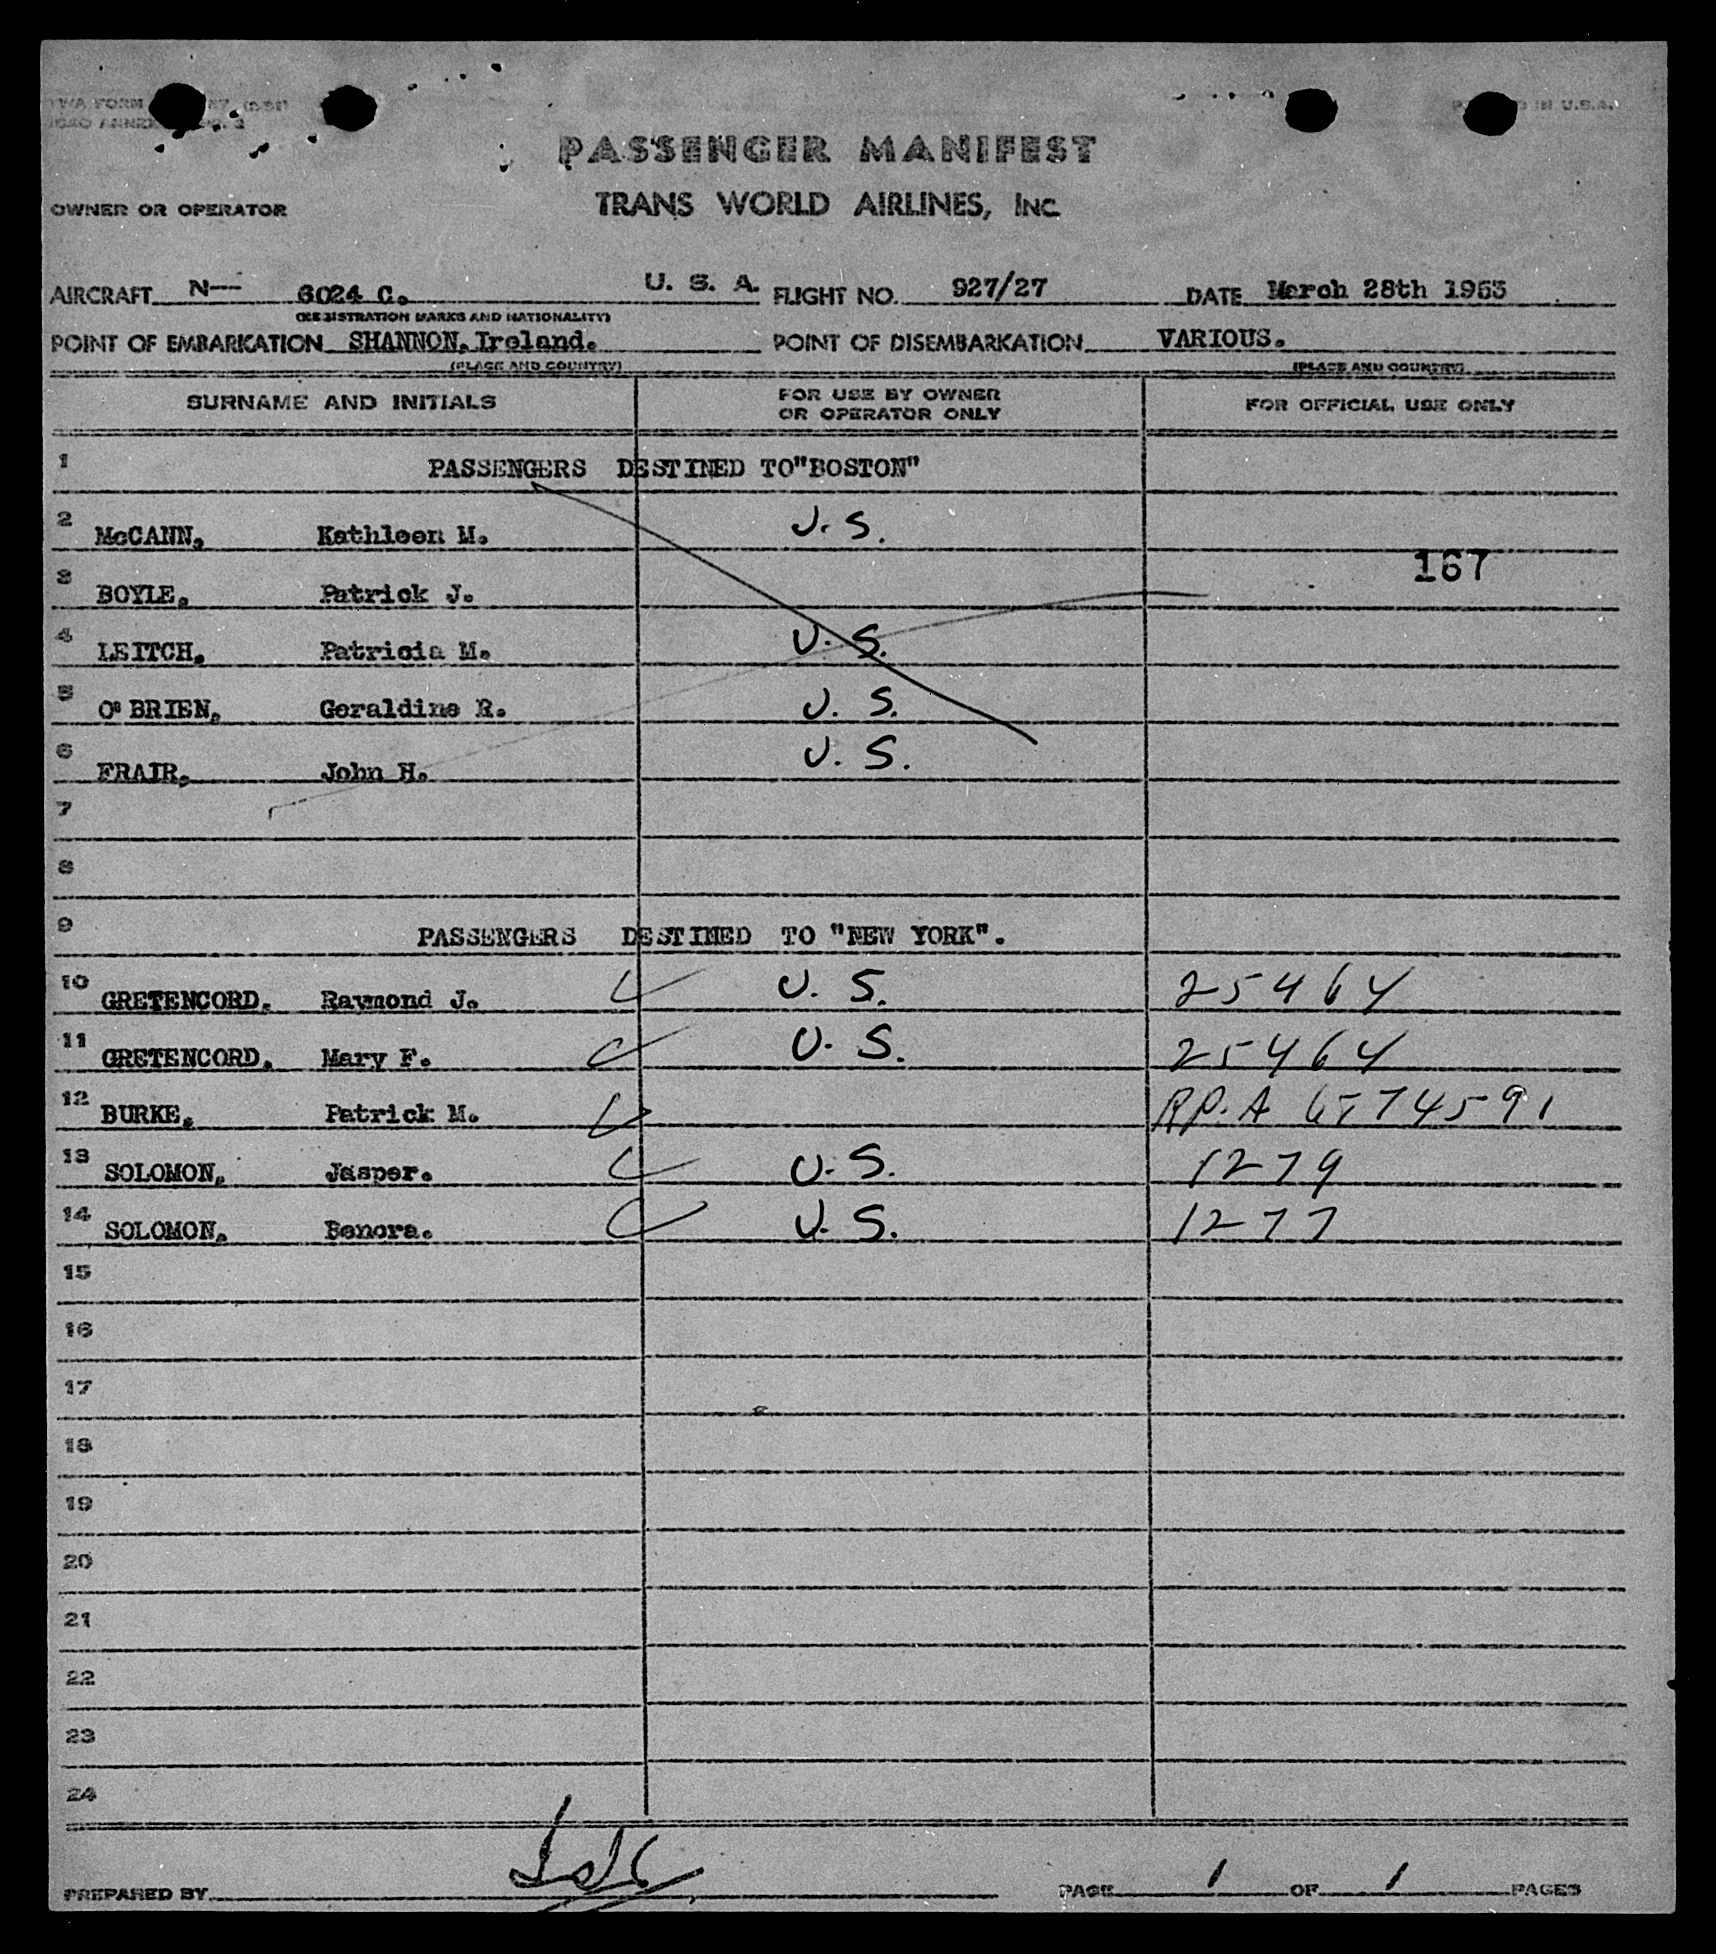 TWA FORM
ICAO ANNEX
IN U.S.A.
PASSENGER MANIFEST
OWNER OR OPERATOR TRANS WORLD AIRLINES, INC.
AIRCRAFT N— 6024 C. U. S. A. FLIGHT NO. 927/27 DATE March 28th 1953
(REGISTRATION MARKS AND NATIONALITY)
POINT OF EMBARKATION SHANNON, Ireland. POINT OF DISEMBARKATION VARIOUS.
(PLACE AND COUNTRY) (PLACE AND COUNTRY)
SURNAME AND INITIALS FOR USE BY OWNER OR OPERATOR ONLY FOR OFFICIAL USE ONLY
1 PASSENGERS DESTINED TO"BOSTON"
2 McCANN, Kathleen M. U.S.
167
3 BOYLE, Patrick J.
4 LEITCH, Patricia M. U.S.
5 O'BRIEN, Geraldine R. U.S.
6 FRAIR, John H. U.S.
7
8
9 PASSENGERS DESTINED TO "NEW YORK".
10 GRETENCORD, Raymond J. U.S. 25464
11 GRETENCORD, Mary F. U.S. 25464
12 BURKE, Patrick M. RP.A 6774591
13 SOLOMON, Jasper. U.S. 1279
14 SOLOMON, Benora. U.S. 1277
15
16
17
18
19
20
21
22
23
24
PREPARED BY PAGE 1 OF 1 PAGES